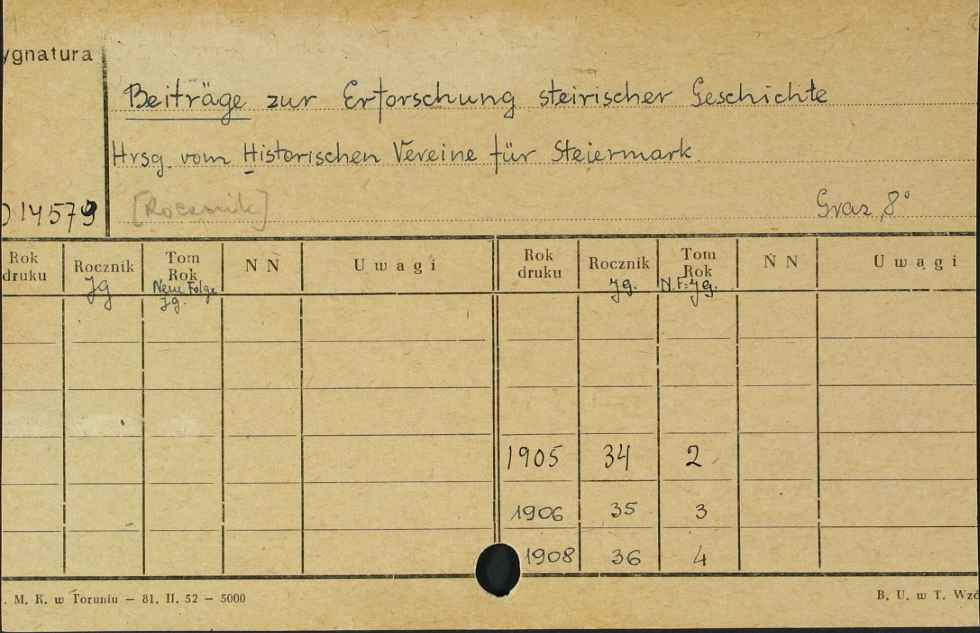 ygnatura
Beiträge zur Erforschung steirischer Geschichte
Hrsg. vom Historischen Vereine für Steiermark
014579 [Rocznik] Graz, 8°
Rok druku Rocznik Tom Rok N N Uwagi Rok druku Rocznik Tom Rok N N Uwagi
Jg Neue Folge Jg. Jg. N.F. Jg.
1905 34 2
1906 35 3
1908 36 4
. M. K. w Toruniu — 81. II. 52 — 5000 B. U. w T. Wzó